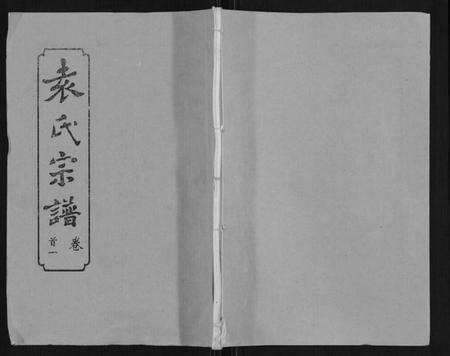 袁氏宗譜
卷
首一